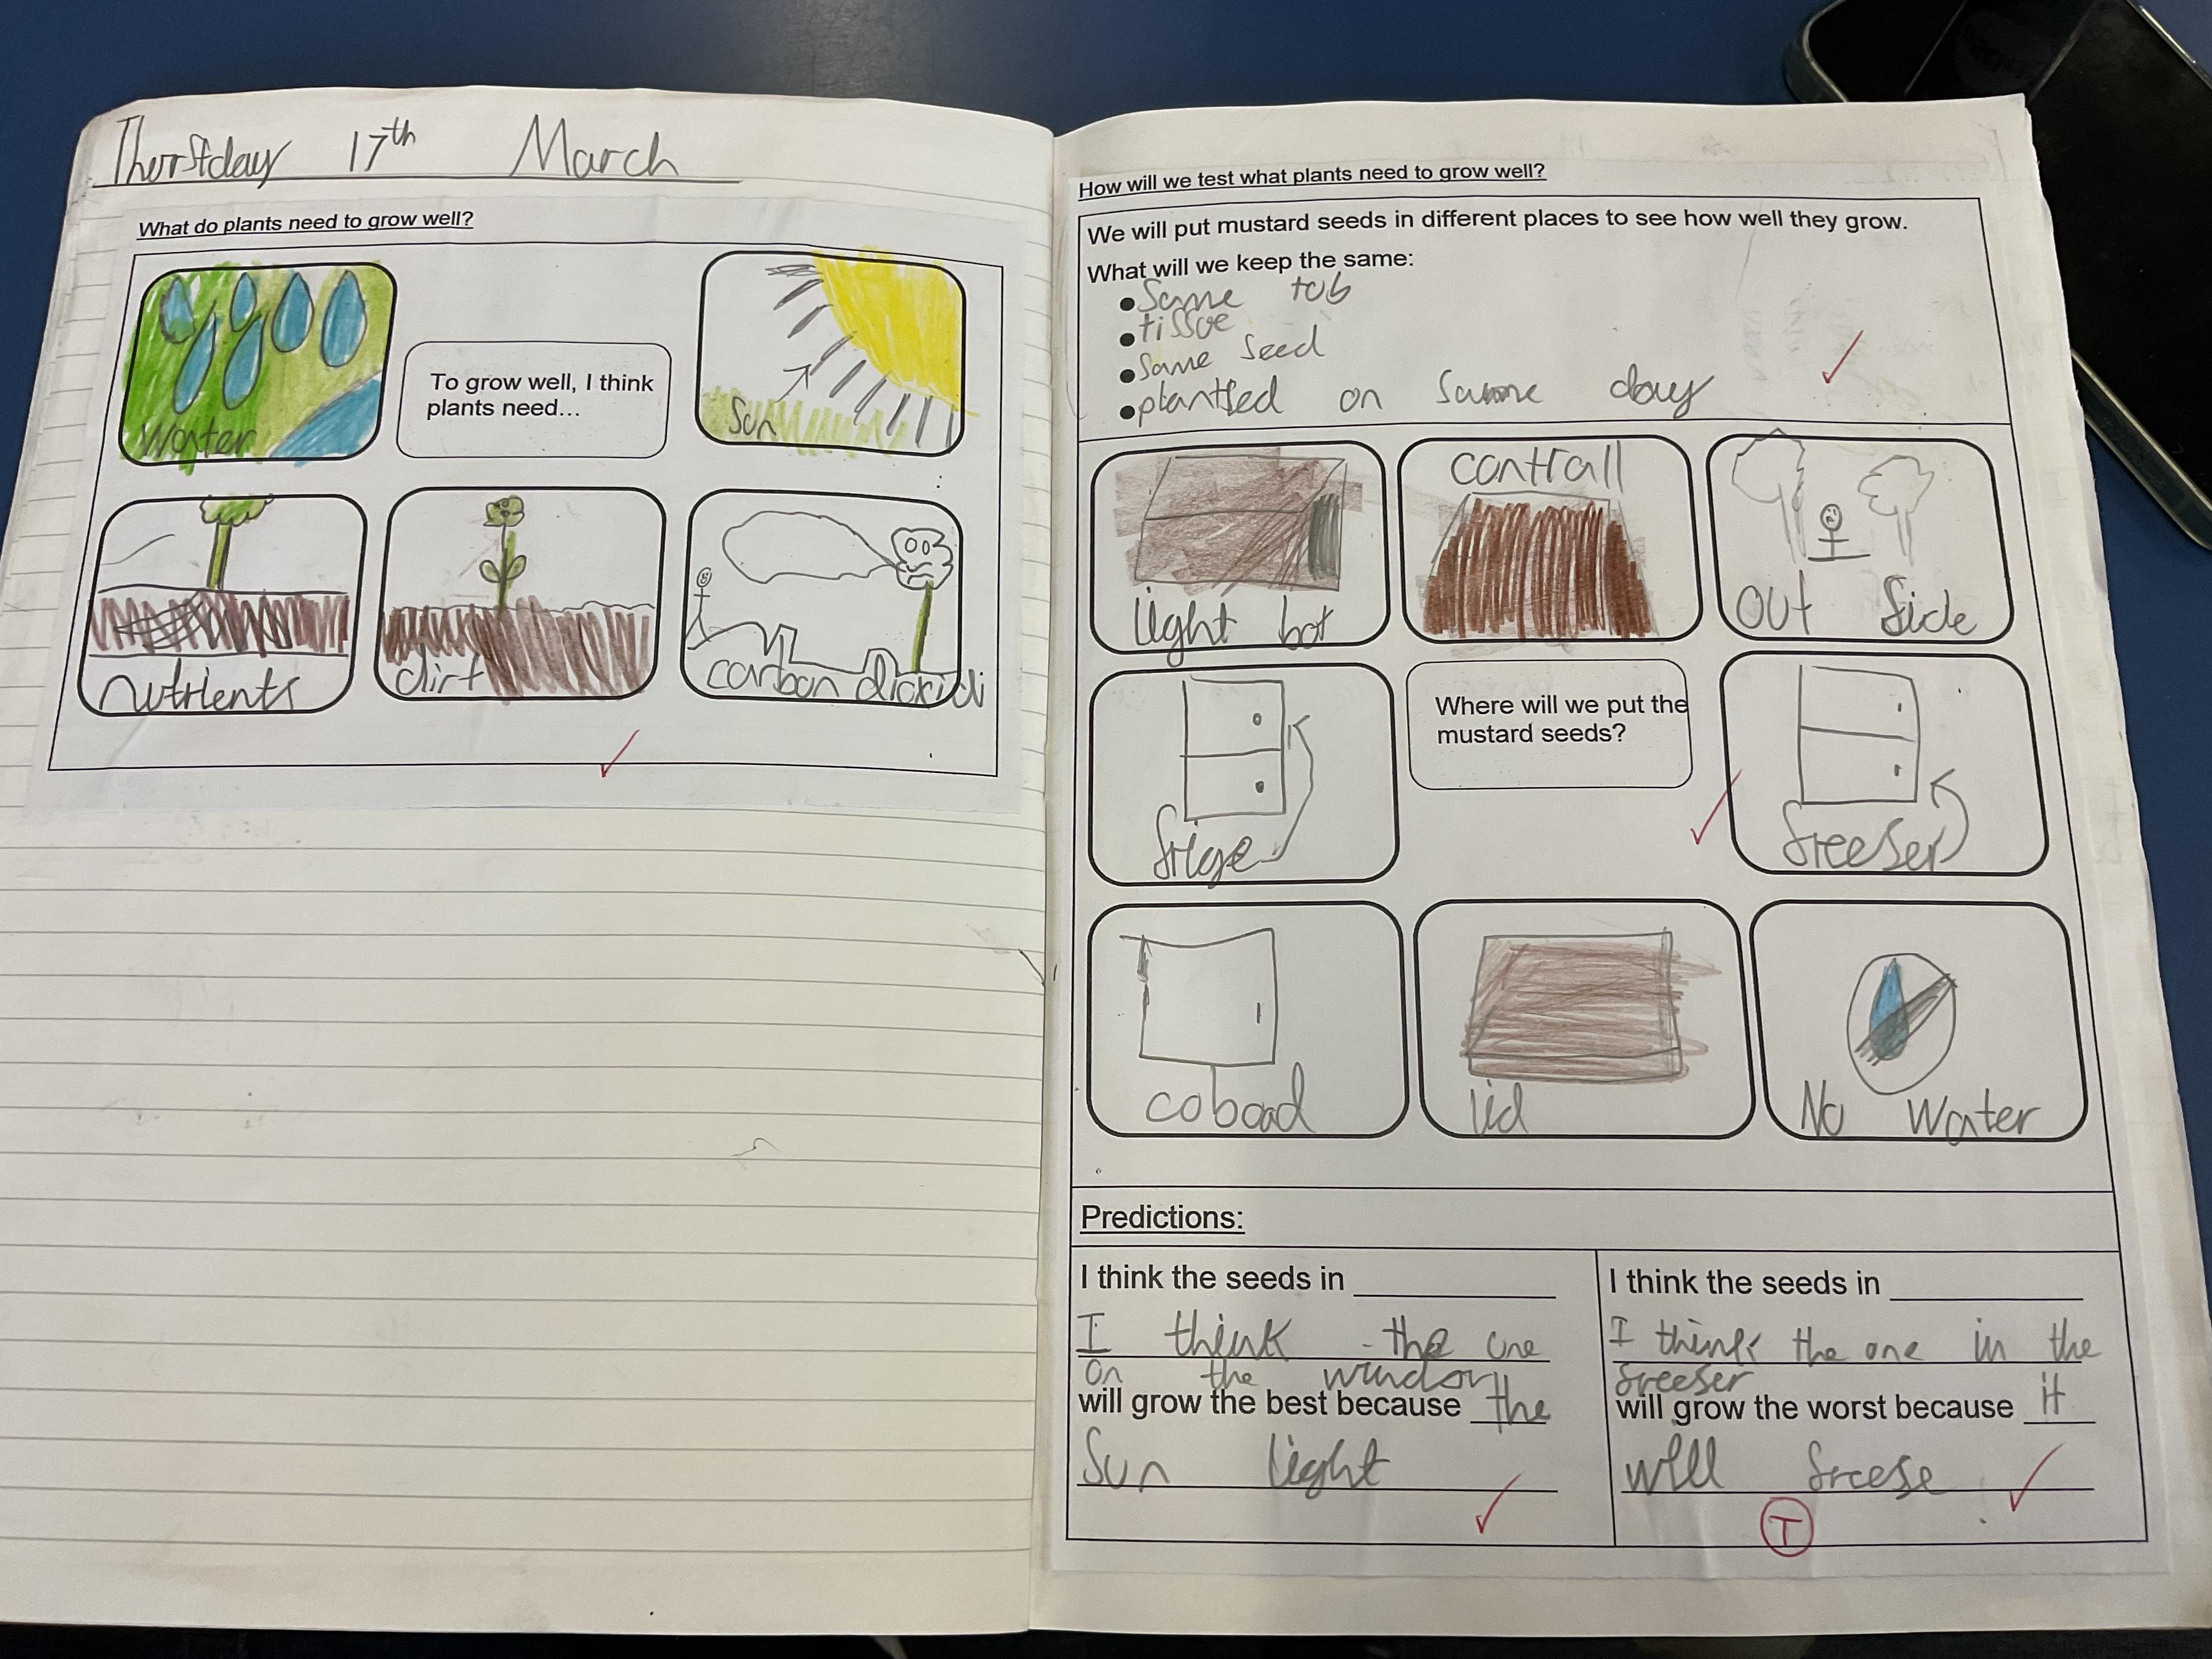 Thurstday 17th March
What do plants need to grow well?
Water
To grow well, I think
plants need...
Sun
nutrients
dirt
carbon dioxidi
How will we test what plants need to grow well?
We will put mustard seeds in different places to see how well they grow.
What will we keep the same:
• Same tub
• tissue
• Same Seed
• plantsed on same day
light bot
contrall
out side
frige
Where will we put the
mustard seeds?
freeser
coboad
lid
No Water
Predictions:
I think the seeds in
I think the one
on the window
will grow the best because the
Sun light
I think the seeds in
I think the one in the
freeser
will grow the worst because it
will freese
T